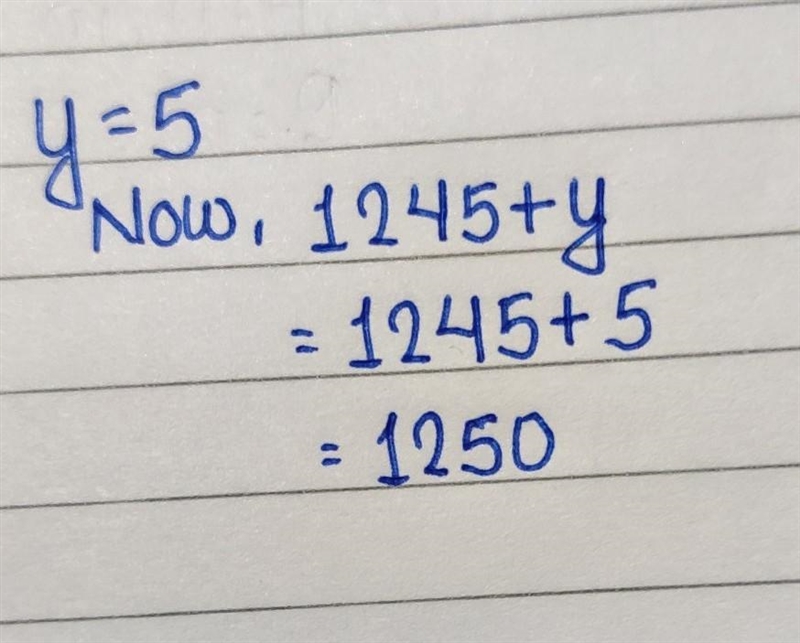 y = 5
Now, 1245 + y
= 1245 + 5
= 1250